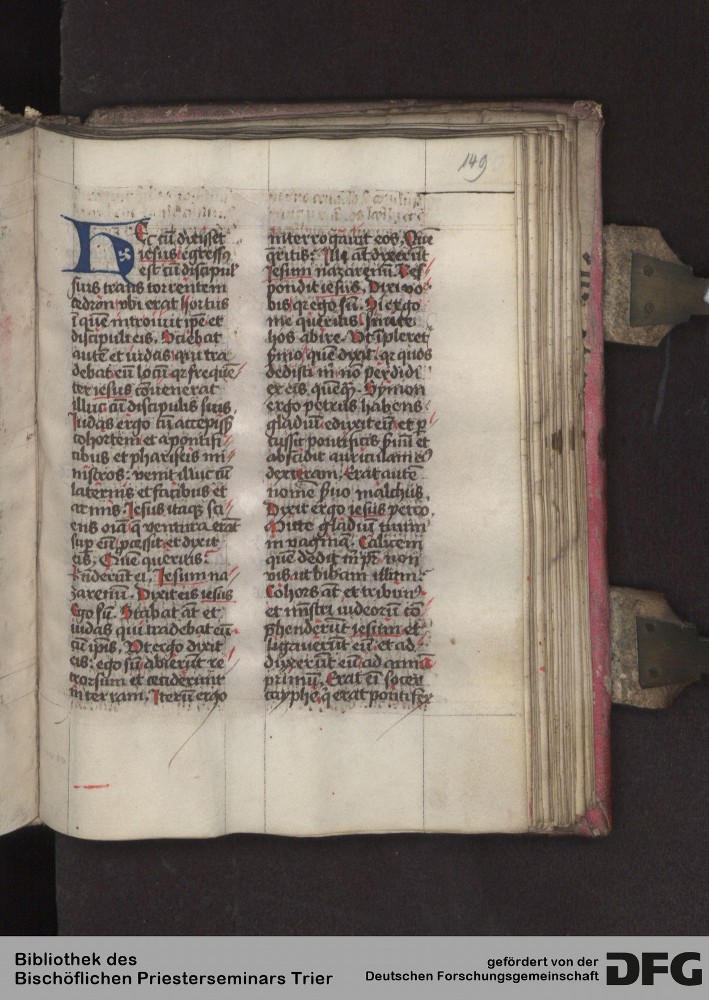 149
Hec cū dixisset
iesus egressꝰ
est cū discipul'
suis trans torrentem
cedron vbi erat hortus
ī quē introiuit ip̄e et
discipuli eis. Sciebat
autē et iudas qui tra
debat eū locū qr freque
ter iesus cōuenerat
illuc cū discipulis suis.
Iudas ergo cū accepiss͛
cohortem et a pontifi
cibus et phariseis mi
nistros: venit illuc cū
laternis et facibus et
armis. Iesus itaqꝫ sci
ens oīa q̄ ventura erāt
sup eū p̄cessit et dixit
eis. Quē queritis:
Rn̄derūt ei. Iesum na
zarenū. Dixit eis iesus
Ego sū. Stabat āt et
iudas qui tradebat eū
cū ip̄is. Vt ergo dixit
eis: ego sū abierūt re
trorsum et ceciderunt
in terram. Iterū ergo
interrogauit eos. Quē
q̄ritis: Illi āt dixerūt
Iesum nazarenū. Res
pondit iesus. Dixi vo
bis qr ego sū. Si ergo
me queritis sinite
hos abire. Vt īpleret
sermo quē dixit. qr quos
dedisti m̄ nō perdidi
ex eis quēqꝫ. Symon
ergo petrus habens
gladiū eduxit eū et ꝑ
cussit pontificis s̄uū et
abscidit auriculam eiꝰ
dexteram. Erat autē
nomē s̄uo malchus.
Dixit ergo iesus petro.
Mitte gladiū tuum
in vaginā. Calicem
quē dedit m̄ pr̄ non
vis ut bibam illum:
Cohors āt et tribunꝰ
et mīstri iudeorū cō
p̄henderūt iesum et
ligauerūt eū: et ad
duxerūt eū ad annā
primū. Erat eī socer
cayphe. q̄ erat pontifex
Bibliothek des
Bischöflichen Priesterseminars Trier
gefördert von der
Deutschen Forschungsgemeinschaft
DFG